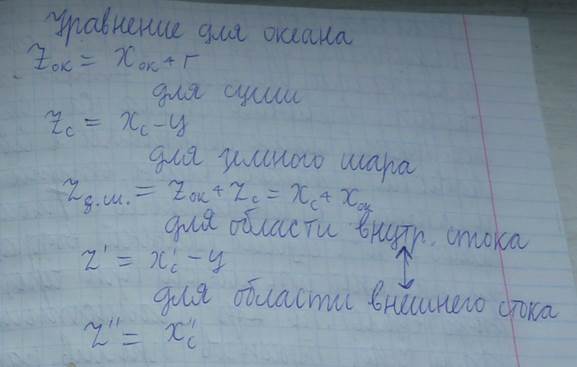 Уравнение для океана
Zок = Xок + Г
для суши
Zс = Xс - У
для земного шара
Zз.ш. = Zок + Zс = Xс + Xок
для области внутр. стока
Z' = X'с - У
для области внешнего стока
Z'' = X''с